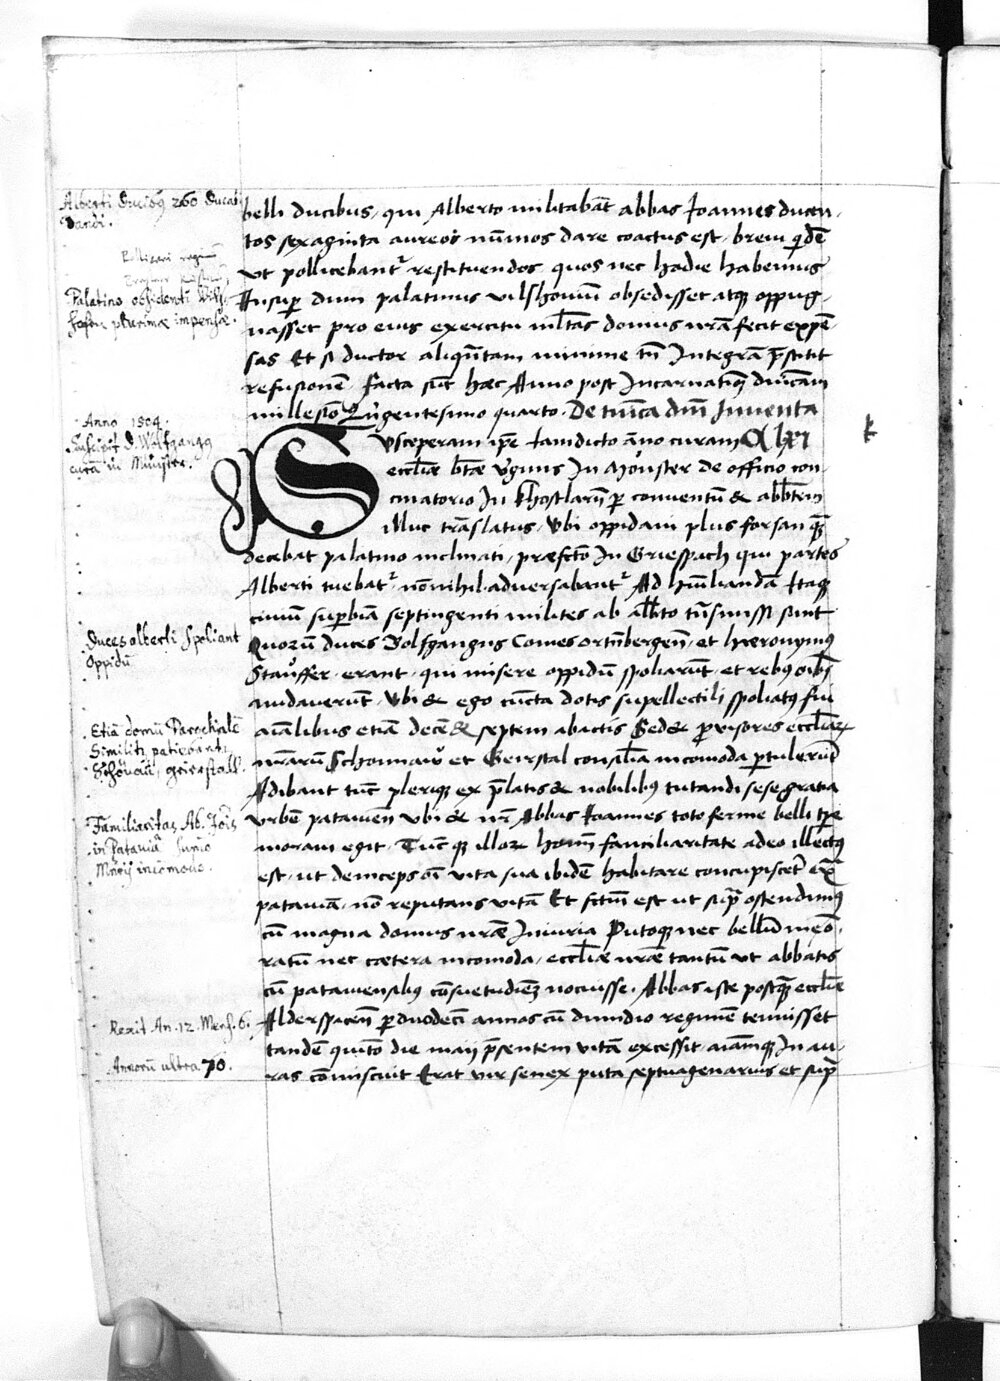 Alberti Ducibus 260 Ducati
dandi.
Palatino obsidenti Vils-
hofen plurimae impensae.
Anno 1504.
Suscipit D. Wolfgangus
curā in Münster.
Duces alberti spoliant
Oppidū
Etiā domū Parochialē
Similiter patiebantur
Schönau, geierstall.
Familiaritas Ab. Jois
in Patavia
Mrij incōmoda.
Rexit An. 12. Mens. 6.
Annorū ultra 70.
belli ducibus, qui Alberto militabāt abbas Joannes ducen-
tos sexaginta aureos nūmos dare coactus est, brevi qidē
ut pollicebant restituendos, quos nec hodie habemus
Insup dum palatinus vilshovium obsedisset atque oppug-
nasset pro eius exercitu mltas domus nrā fecit expē-
sas Et si ductor aliqūtam minime tn Integrā pstitit
refusionē, facta sūt hæc Anno post Incarnatiōe dnīcam
millesīo quīgentesimo quarto. De tunica dnī Inventa
Susceperam ipe Iamdicto āno curam
eccliæ btæ vginis In Mōnster de officio con-
cinatorio In Khostlarn p conventū & abbtem
illuc trāslatus, Ubi oppidani plus forsan quā
decebat palatino inclinati, præfcto In Griespach qui partes
Alberti tuebat, nōnihil adversabant, Ad hūiliandā Itaque
civiū supbiā septingenti milites ab albto trāsmissi sunt
Quorū duces Volfgangus Comes Ortnbergen, et hieronymus
Stauffer, erant, qui misere oppidū spoliarūt, et rebus oibs
nudaverūt, Ubi & ego cūcta dotis supellectili spoliatus fui
aīalibus etiā decē & septem abactis Sed & pvisores eccliarum
nrārū Schonnaw et Geirstal consilia incomoda ptulerūt
Adibant tūc plerique ex platis & nobilibus tutandi sese gratia
urbē patavien Ubi & nr Abbas Joannes toto ferme belli tpe
moram egit, Tūc que illorum hoīm familiaritate adeo illectus
est, ut deinceps oī vita sua ibidē habitare concupisceret extra
patavīā, nō reputans vitā Et fctm est ut supra ostendimus
cū magna domus nræ Iniuria Putoque nec bellū meō-
ratū nec cætera incomoda, eccliæ nræ tantūm ut abbatis
cū patavensibus cōsuetudinē nocuisse. Abbas iste postquā eccliæ
Alderspacen p duodecī annos cū dimidio regimē tenuisset
tandē quīto die maij pasentem vitā excessit, aīamque In au-
ras cōmiscuit Erat vir senex puta septuagenarius et sup
k